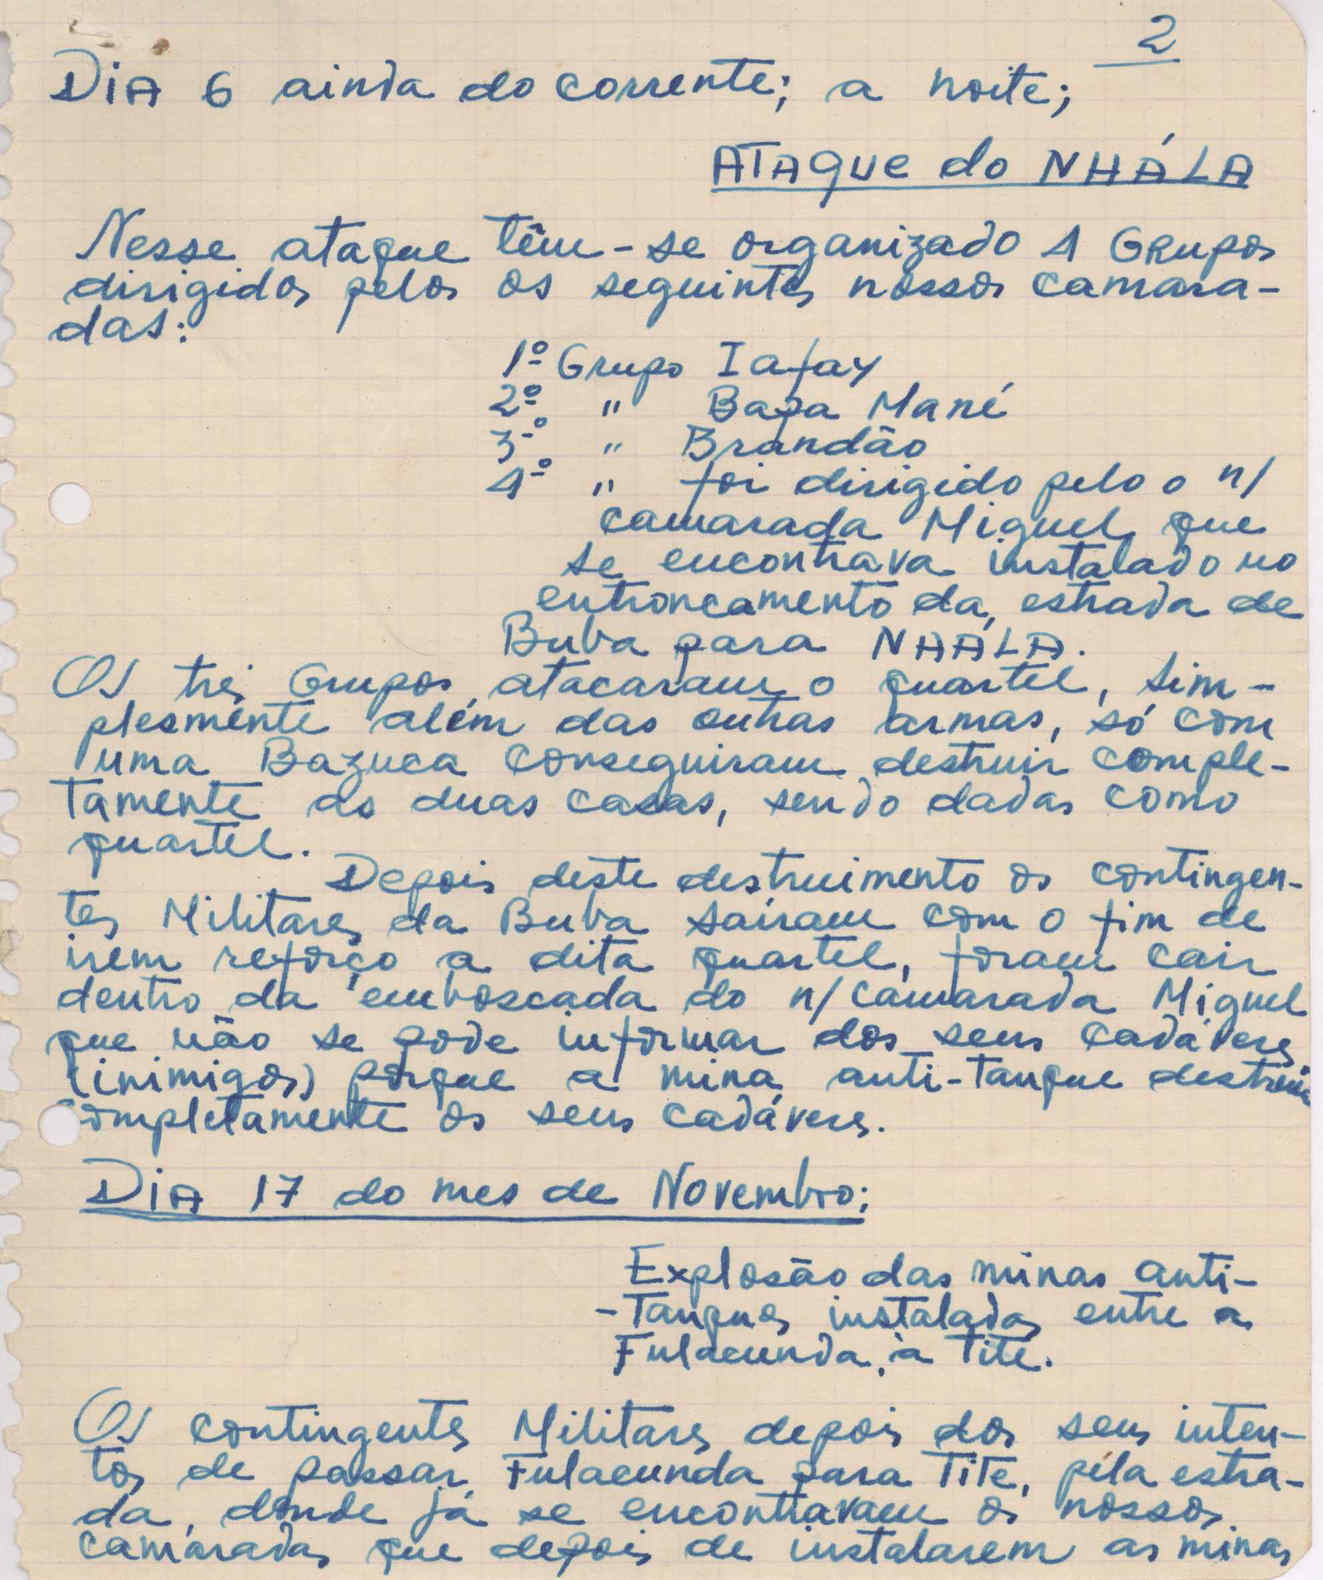 2
DiA 6 ainda do corrente; a noite;
ATAque do NHÁLA
Nesse ataque têm-se organizado 4 Grupos
dirigidos pelos os seguintes nossos camara-
das:
1º Grupo Iafay
2º " Baza Mané
3º " Brandão
4º " foi dirigido pelo o n/
camarada Miguel que
se encontrava instalado no
entroncamento da estrada de
Buba para NHÁLA.
Os três Grupos atacaram o quartel, sim-
plesmente além das outras armas, só com
uma Bazuca conseguiram destruir comple-
tamente as duas casas, sendo dadas como
quartel.
Depois deste destruimento os contingen-
tes Militares da Buba sairam com o fim de
irem reforço a dita quartel, foram cair
dentro da emboscada do n/camarada Miguel
que não se pode informar dos seus cadáveres
(inimigos) porque a mina anti-tanque destruiu
completamente os seus cadáveres.
DiA 17 do mes de Novembro;
Explosão das minas anti-
-Tanques instalados entre a
Fulacunda à Tite.
Os contingentes Militares depois dos seus inten-
tos de passar Fulacunda para TiTe, pela estra-
da, donde já se encontravam os nossos
camaradas que depois de instalarem as minas